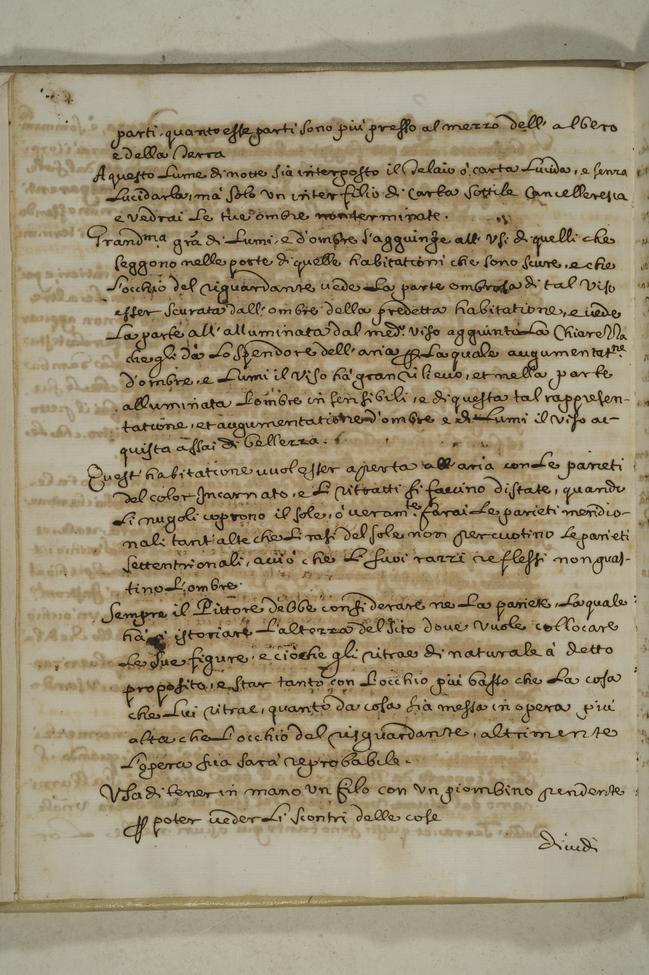 parti, quanto esse parti sono piú presso al mezzo dell' albero
e della Terra
A questo Lume di notte sia interposto il telaio ó carta Lucida, e senza
Lucidarla, mà solo un inter filio di Carta sottile Cancelleresca
e vedrai Le tue ombre non terminate.
Grandma gra di Lumi, e d'ombre s'aggiunge alli Visi di quelli che
seggono nelle porte di quelle habitationi che sono scure, e che
L'occhio del riguardante vede La parte ombrosa di tal Viso
esser scurata dall' ombre della predetta habitatione, e vede
La parte all' alluminata dal med.o viso aggiunto La Chiarezza
che gli dà Lo splendore dell' aria p La quale augumentatne
d'ombre, e Lumi il Viso hà gran rilievo, et nella parte
alluminata L'ombre insensibili, e di questa tal rappresen-
tatione, et augumentatione d'ombre e di Lumi il viso ac-
quista assai di bellezza.
Quest' habitatione vuol esser aperta all' aria con Le parieti
del color Incarnato, e Li ritratti si faccino d'istate, quando
Li nugoli coprono il sole, ó veramte farai Le parieti meridio-
nali tant' alte che Li rasi del sole non percuotino Le parieti
settentrionali, acció che Li suoi razzi reflessi non guas-
tino L'ombre.
Sempre il Pittore debbe considerare ne La pariete, La quale
hà istoriare L'altezza del sito dove vuole collocare
Le sue figure, e ció che gli ritrae di naturale á detto
proposito, e star tanto con L'occhio piú basso che La cosa
che Lui ritrae, quanto da cosa sia messa in opera piú
alta che L'occhio del risguardante, altrimente
L'opera sua sarà reprobabile.
Usa di tener in mano un filo con un piombino pendente
p poter veder Li scontri delle cose